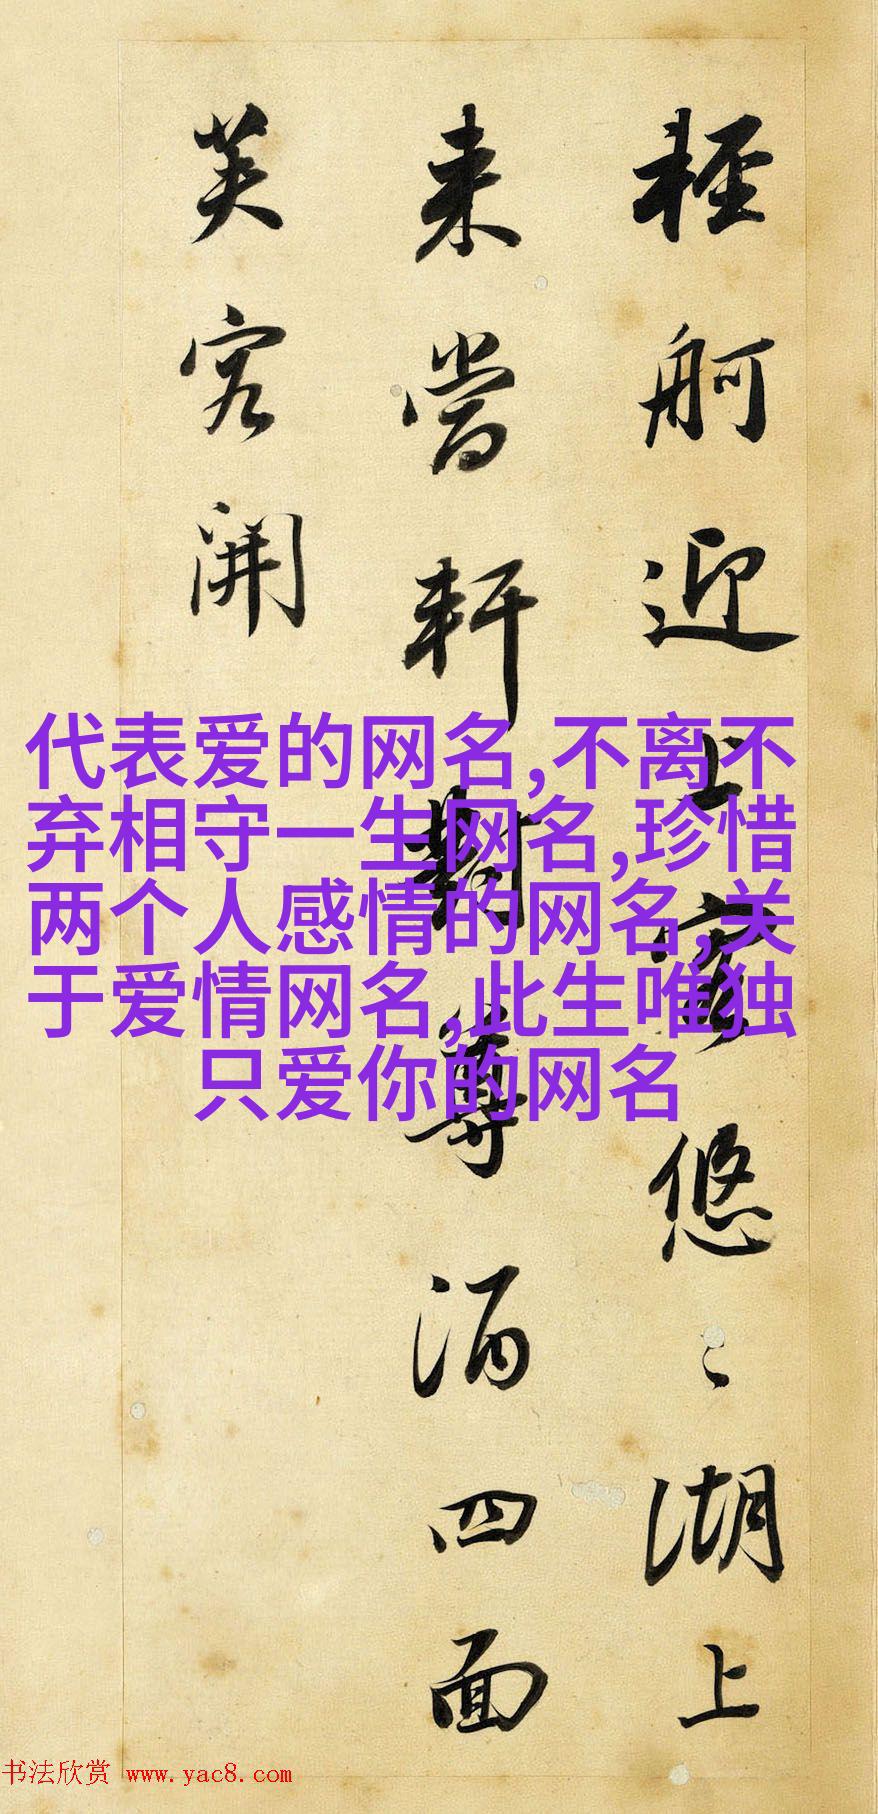 轻舸迎上客悠悠湖上
来当轩对尊酒四面
芙容开
代表爱的网名,不离不
弃相守一生网名,珍惜
两个人感情的网名,关
于爱情网名,此生唯独
只爱你的网名
书法欣赏 www.yac8.com